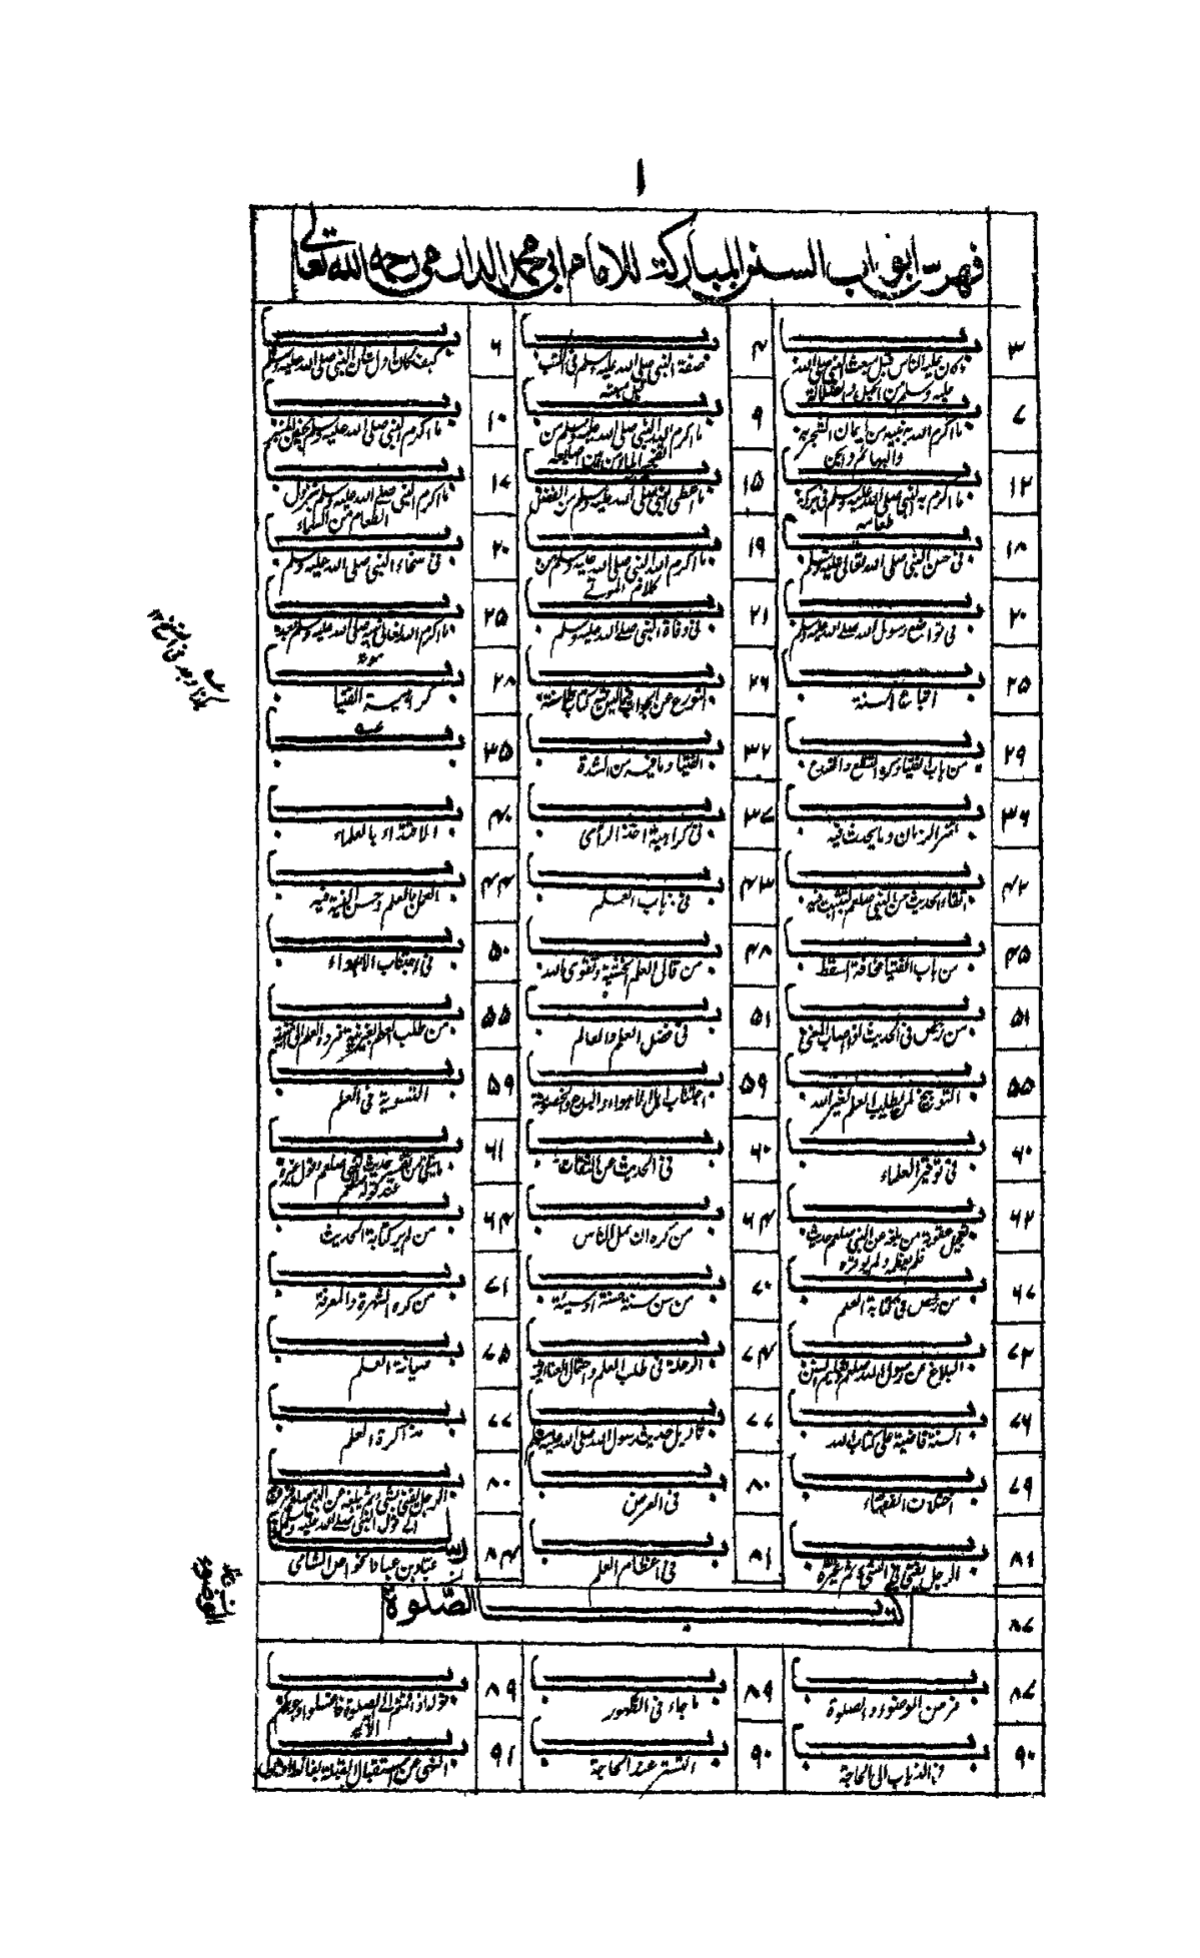 ١
فهرس ابواب السنن المباركة للامام ابى محمد الدارمى رحمه الله تعالى
٣ باب ما كان عليه الناس قبل مبعث النبى صلى الله عليه وسلم من الجهل والضلالة
٤ باب صفة النبى صلى الله عليه وسلم فى الكتب قبل مبعثه
٦ باب كيف كان اول شان النبى صلى الله عليه وسلم
٧ باب ما اكرم الله به نبيه من ايمان الشجر به والبهائم والجن
٩ باب ما اكرم الله النبى صلى الله عليه وسلم من تفجير الماء من بين اصابعه
١٠ باب ما اكرم النبى صلى الله عليه وسلم بحنين المنبر
١٢ باب ما اكرم به النبى صلى الله عليه وسلم فى بركة طعامه
١٥ باب ما اعطى النبى صلى الله عليه وسلم من الفضل
١٧ باب ما اكرم النبى صلى الله عليه وسلم بنزول الطعام من السماء
١٨ باب فى حسن النبى صلى الله تعالى عليه وسلم
١٩ باب ما اكرم الله النبى صلى الله عليه وسلم من كلام الموتى
٢٠ باب فى سخاء النبى صلى الله عليه وسلم
٢٠ باب فى تواضع رسول الله صلى الله عليه وسلم
٢١ باب فى وفاة النبى صلى الله عليه وسلم
٢٥ باب ما اكرم الله تعالى نبيه صلى الله عليه وسلم بعد موته
٢٥ باب اتباع السنة
٢٦ باب التورع عن الجواب فيما ليس فيه كتاب ولا سنة
٢٨ باب كراهية الفتيا
٢٩ باب من هاب الفتيا وكره التنطع والتبدع
٣٢ باب الفتيا وما فيه من الشدة
٣٥ باب منه
٣٦ باب تغير الزمان وما يحدث فيه
٣٧ باب فى كراهية اخذ الرأى
٤٠ باب الاقتداء بالعلماء
٤٢ باب اتقاء الحديث عن النبى صلعم والتثبت فيه
٤٣ باب فى ذهاب العلم
٤٤ باب العمل بالعلم وحسن النية فيه
٤٥ باب من هاب الفتيا مخافة السقط
٤٨ باب من قال العلم الخشية وتقوى الله
٥٠ باب فى اجتناب الاهواء
٥١ باب من رخص فى الحديث اذا اصاب المعنى
٥١ باب فى فضل العلم والعالم
٥٥ باب من طلب العلم بغير نية فرده العلم الى النية
٥٥ باب التوبيخ لمن يطلب العلم لغير الله
٥٩ باب اجتناب اهل الاهواء والبدع والخصومة
٥٩ باب التسوية فى العلم
٦٠ باب فى توقير العلماء
٦٠ باب فى الحديث عن الثقات
٦١ باب ما يتقى من تفسير حديث النبى صلعم وقول غيره عند قوله صلعم
٦٢ باب تعجيل عقوبة من بلغه عن النبى صلعم حديث فلم يعظمه ولم يوقره
٦٤ باب من كره ان يمل الناس
٦٤ باب من لم ير كتابة الحديث
٦٧ باب من رخص فى كتابة العلم
٧٠ باب من سن سنة حسنة او سيئة
٧١ باب من كره الشهرة والمعرفة
٧٢ باب البلاغ عن رسول الله صلعم وتعليم السنن
٧٤ باب الرحلة فى طلب العلم واحتمال العناء فيه
٧٥ باب صيانة العلم
٧٦ باب السنة قاضية على كتاب الله
٧٧ باب تاويل حديث رسول الله صلى الله عليه وسلم
٧٧ باب مذاكرة العلم
٧٩ باب اختلاف الفقهاء
٨٠ باب فى العرض
٨٠ باب الرجل يفتى بشئ ثم يبلغه عن النبى صلعم فيرجع الى قول النبى صلى الله عليه وسلم
٨١ باب الرجل يفتى فى الشئ ثم غيره
٨١ باب فى اعظام العلم
٨٤ رسالة عباد بن عباد الخواص الشامى
٨٧ كتاب الصلوة
٨٧ باب فرض الوضوء والصلوة
٨٩ باب ما جاء فى الطهور
٨٩ باب قوله اذا قمتم الى الصلوة فاغسلوا وجوهكم الآية
٩٠ باب فى الذهاب الى الحاجة
٩٠ باب التستر عند الحاجة
٩١ باب النهى عن استقبال القبلة بغائط او بول
هكذا وجد فى النسخ ١٢
الوضوء